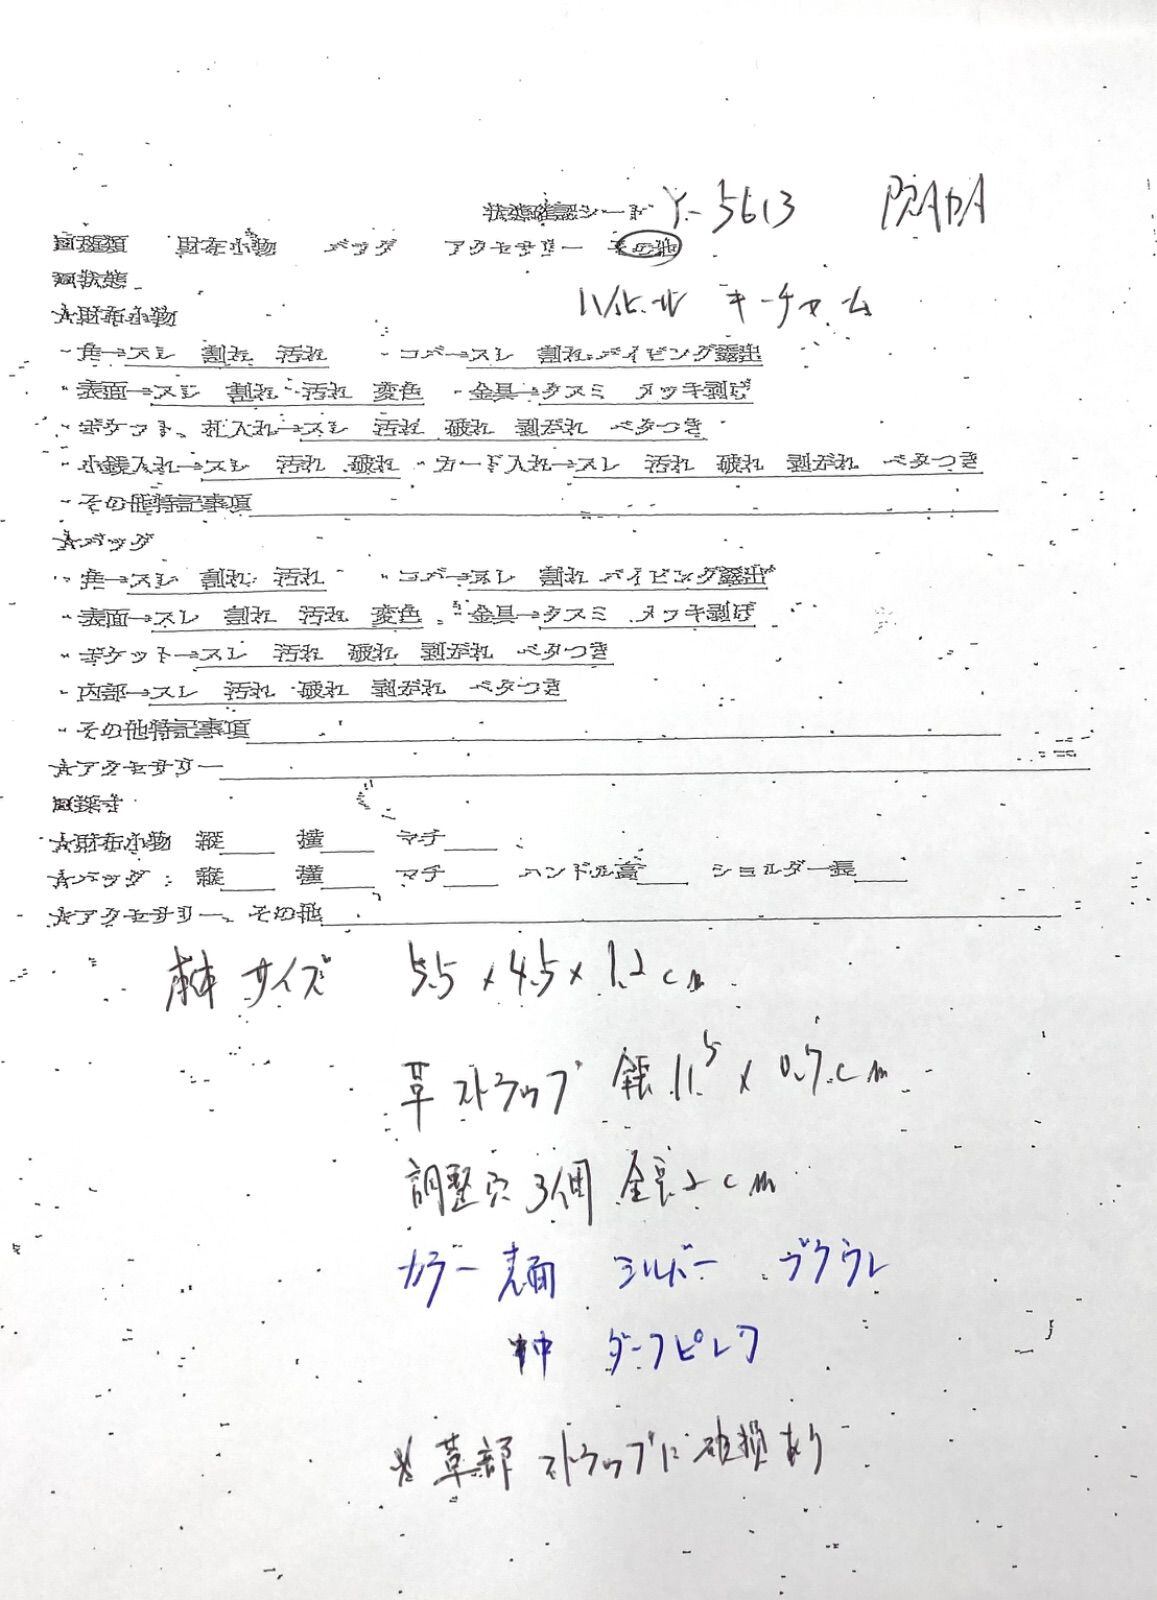 状態確認シート Y-5613 PRADA
□種類 財布小物 バッグ アクセサリー その他
□状態
ハイヒール キーチャーム
☆財布小物
・角→スレ 割れ 汚れ ・コバ→スレ 割れ パイピング露出
・表面→スレ 割れ 汚れ 変色 ・金具→クスミ メッキ剥げ
・ポケット、札入れ→スレ 汚れ 破れ 剥がれ ベタつき
・小銭入れ→スレ 汚れ 破れ ・カード入れ→スレ 汚れ 破れ 剥がれ ベタつき
・その他特記事項
☆バッグ
・角→スレ 割れ 汚れ ・コバ→スレ 割れ パイピング露出
・表面→スレ 割れ 汚れ 変色 ・金具→クスミ メッキ剥げ
・ポケット→スレ 汚れ 破れ 剥がれ ベタつき
・内部→スレ 汚れ 破れ 剥がれ ベタつき
・その他特記事項
☆アクセサリー
□採寸
☆財布小物 縦 横 マチ
☆バッグ 縦 横 マチ ハンドル高 ショルダー長
☆アクセサリー、その他
本体 サイズ 5.5 x 4.5 x 1.2 cm
革 ストラップ 全長 11.5 x 0.7 cm
調整穴 3個 全長 2 cm
カラー 表面 シルバー
中 ダークピンク
※革部 ストラップに破損あり